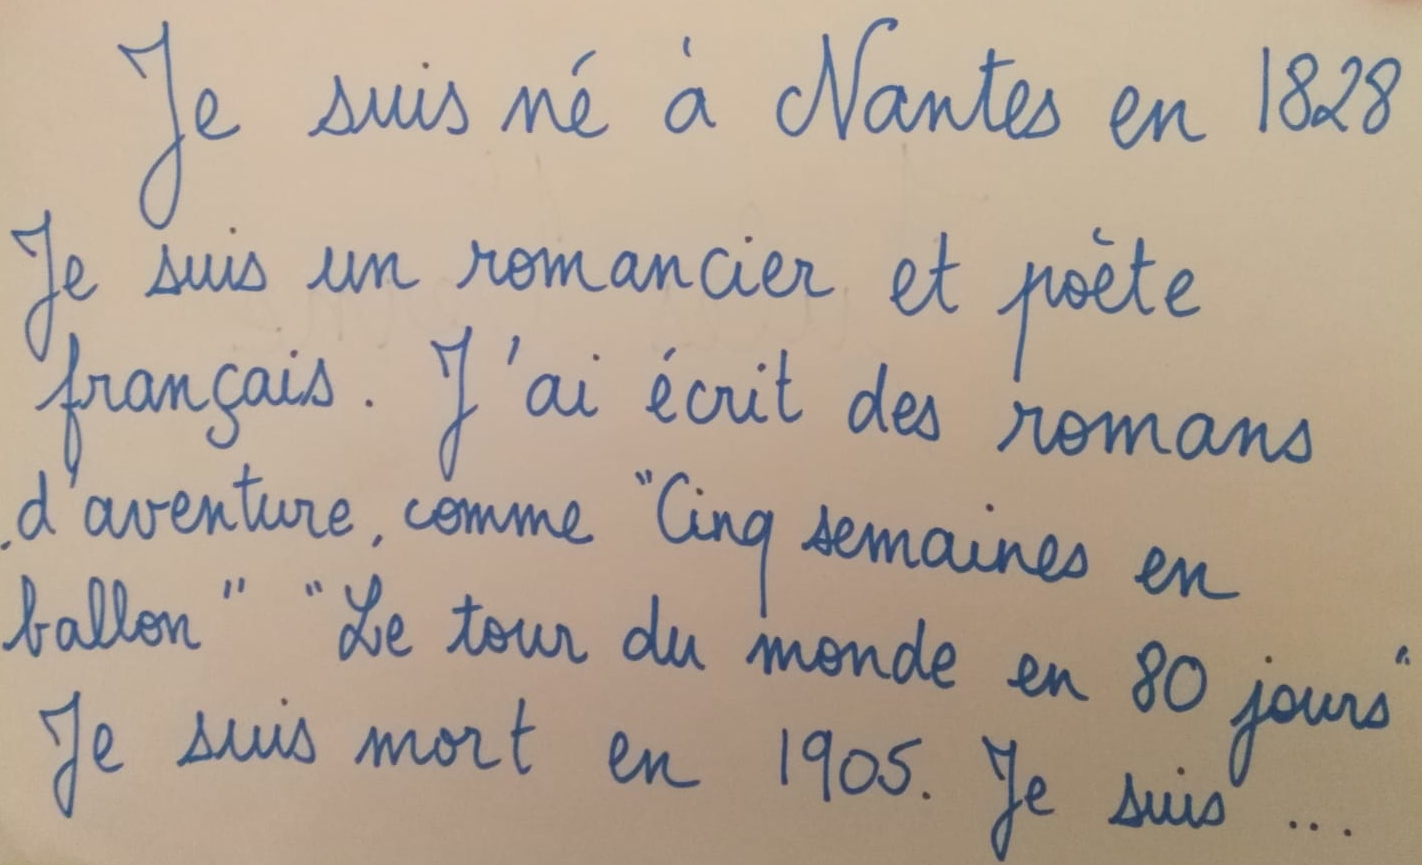 Je suis né à Nantes en 1828
Je suis un romancier et poète
français. J'ai écrit des romans
d'aventure, comme "Cinq semaines en
ballon" "Le tour du monde en 80 jours"
Je suis mort en 1905. Je suis ...